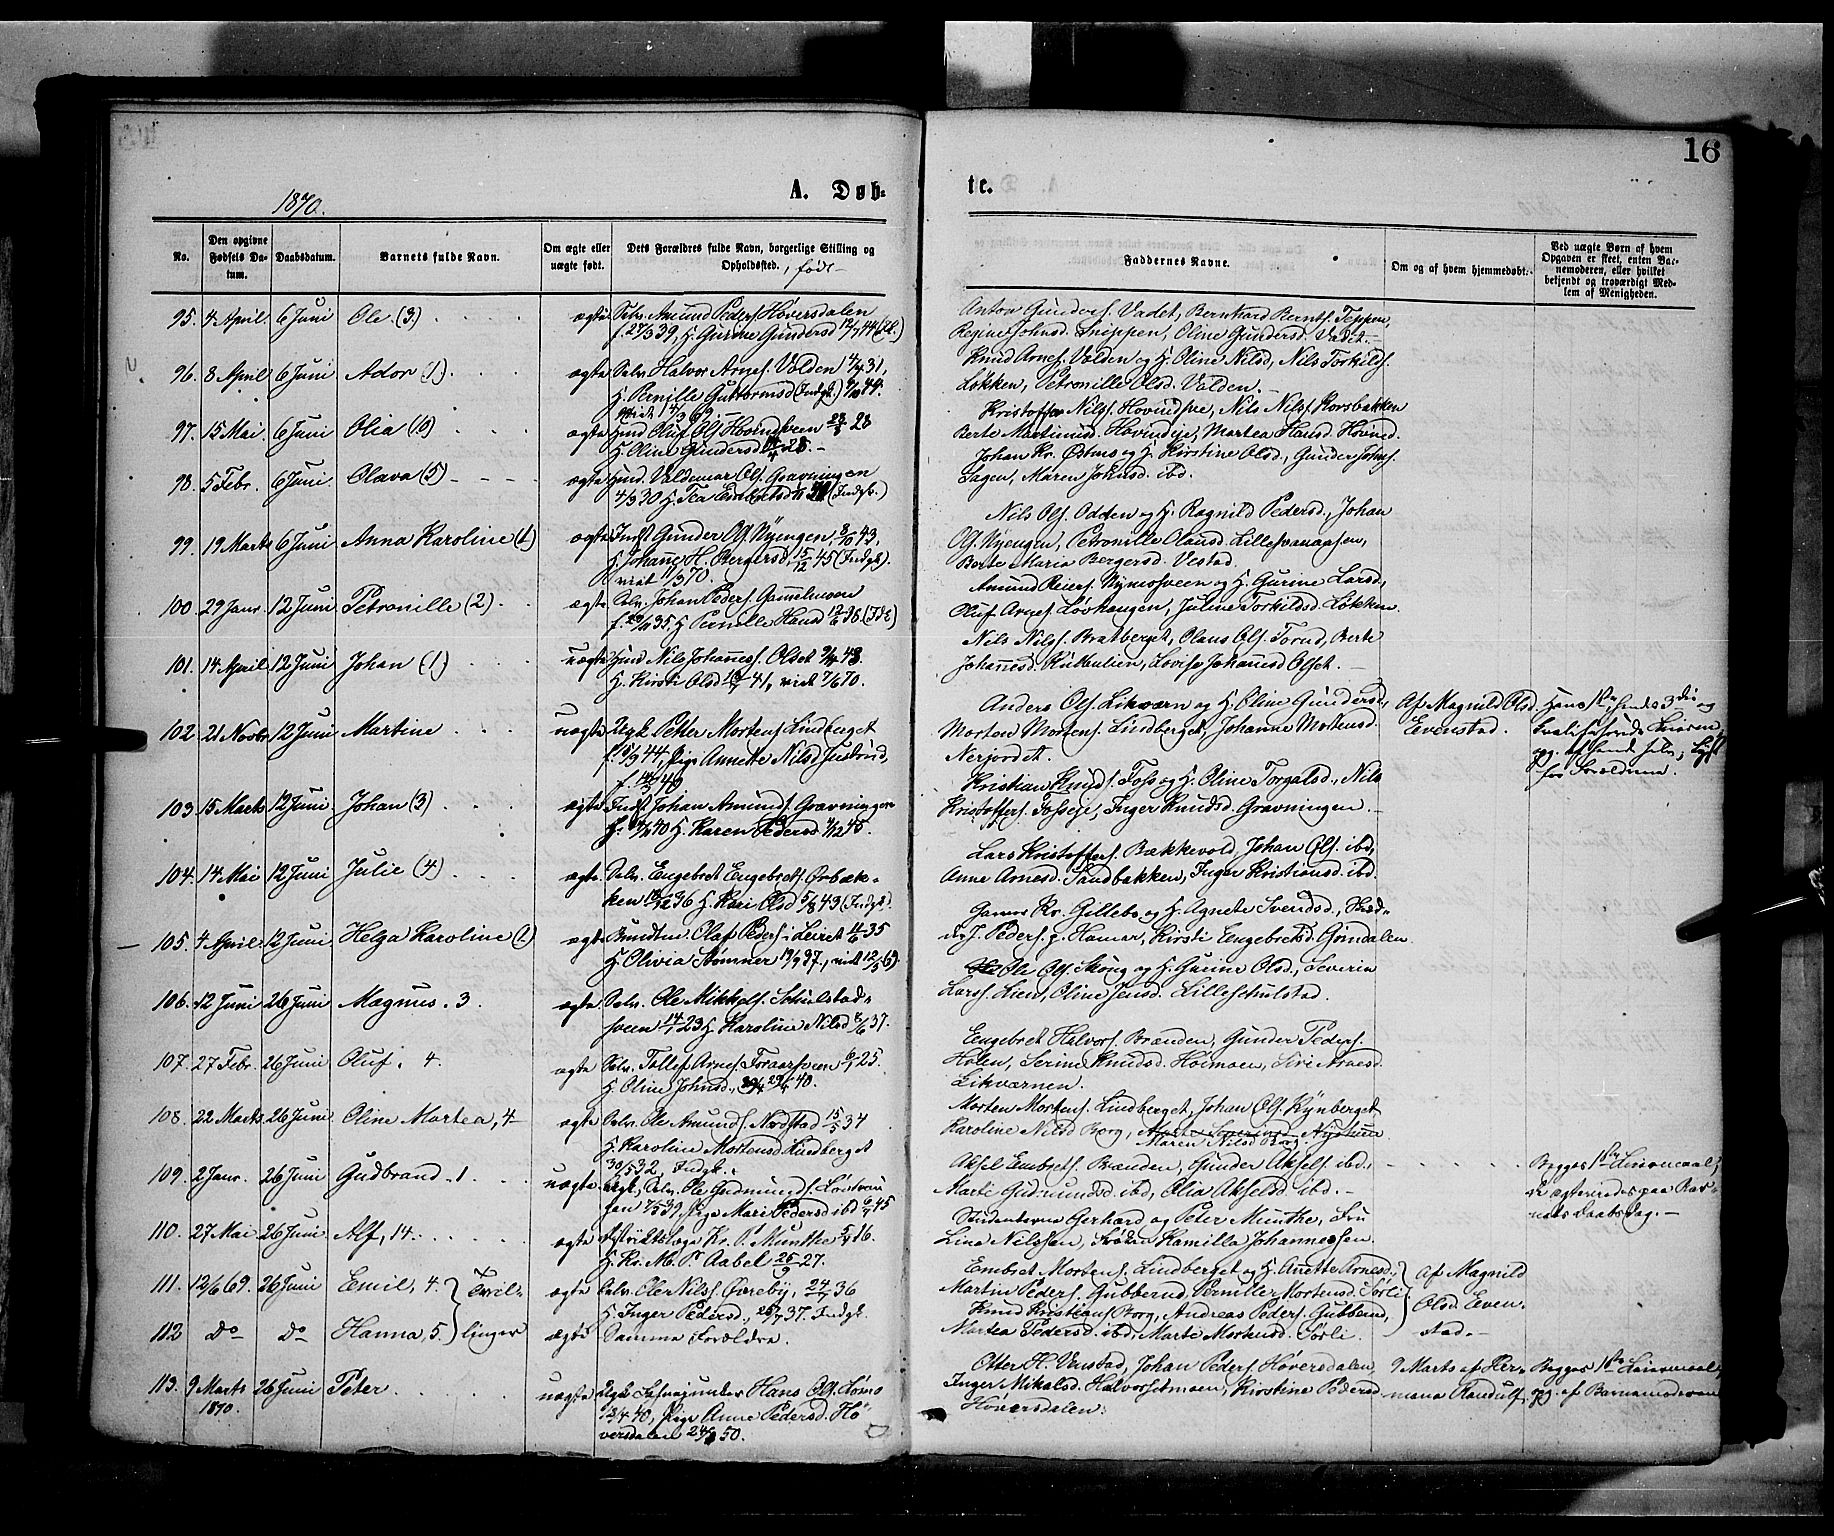 16
1870.
A. Døb-
te.
No.
Den opgivne Fødsels Datum.
Daabsdatum.
Barnets fulde Navn.
Om ægte eller uægte født.
Dets Forældres fulde Navn, borgerlige Stilling og Opholdssted.,føde-
Faddernes Navne.
Om og af hvem hjemmedøbt.
Ved uægte Børn af hvem Opgaven er skeet, enten Barnemoderen, eller hvilket bekjendt og troværdigt Medlem af Menigheden.
95. 4 April 6 Juni Ole (3) ægte Selv. Amund Peders. Høversdalen
f. 27/3 39, H. Gurine Gundersd
Anton Gunders. Vadet, Bernhard Bernts. Teppen,
Regine Johnsd. Snippen, Oline Gundersd. Vadet.-
96. 8 April 6 Juni Ador (1) ægte Selv. Halvor Arnes. Volden 4/7 31,
H. Pernille Guttormsd (Indgk.)
vied
Knud Arnes. Volden og H. Oline Nilsd, Nils Torkils.
Løkken, Petronille Olsd. Volden.-
97. 15 Mai 6 Juni Olia (10) ægte Huus. Oluf Ols. Hovindsveen 23/8 23
H. Oline Gundersd. 28.-
Kristoffer Nils. Hovindsve, Nils Nils. Korsbakken
Berte Martinusd. Hovindeje, Martea Hansd. Hovind.
98. 5 Febr. 6 Juni Olava (5) ægte Huus. Valdemar Ols. Gravningen
4/9 30 H. Tea Embretsd (Indgk.)
Johan Kr. Østmo og H. Kirstine Olsd, Gunder Johns.
Hagen, Maren Johnsd. ibd.
99. 19 Marts 6 Juni Anna Karoline (1) ægte Indst Gunder Ols. Nyengen, 8/10 43,
H. Johanne H. Bergersd, 15/12 45 (Indgk.)
viet 11/3 70.
Nils Ols. Odden og H. Ragnild Pedersd., Johan
Ols. Nyengen, Petronille Olausd. Lillesvanaasen,
Berte Maria Bergersd. Vestad.
100. 29 Janr. 12 Juni Petronille (2) ægte Selv. Johan Peders. Gammelsveen
35. H Pernille Hansd
Amund Reiers. Nymosveen og H. Gurine Larsd,
Oluf Arnes. Løvhaugen, Juline Torkildsd. Løkken.
101. 14 April 12 Juni Johan (1) uægte Huus. Nils Johannes. Olset 48.
H. Kirsti Olsd 41, viet 7/6 70.
Nils Nils. Bratberget, Olaus Ols. Torud, Berte
Johannesd. Kulbulien, Lovise Johannesd Olset.-
102. 21 Novbr 12 Juni Martine uægte Ugk. Petter Mortens. Lindberget
44, Pige Annette Nilsd Justrud,
Anders Ols. Likværn og H. Oline Gundersd.,
Morten Mortens. Lindberget, Johanne Mortensd.
Nerjordet.
Af Magnild Olsd.
Evenstad.
Hans 1ste, hendes 3die og
kvalificerede Leierm.
opg. af hende selv,
for Forældrene.
103. 15 Marts 12 Juni Johan (3) ægte Indst Johan Amunds. Gravningen
40 H. Karen Pedersd. 45.
Kristian Knuds. Foss og H. Oline Torgalsd., Nils
Kristoffers. Fosseje, Inger Knudsd. Gravningen.-
104. 14 Mai 12 Juni Julie (4) ægte Selv. Engebret Engebrets. Ørbæk-
ken 36 H. Kari Olsd 5/8 43 (Indgk.)
Lars Kristoffers. Bækkevold, Johan Ols. ibd,
Anne Arnesd. Sandbakken, Inger Kristiansd. ibd.
105. 4 April 12 Juni Helga Karoline (1) ægte Bundtm. Olaf Peders. i Leiret 11/6 35
H. Olivia Stømner 19/9 37., viet
Gamr Kr. Gillebo og H. Agnete Svendsd.,
J. Peders. f. Hamar, Kirsti Engebretsd. Grindalen.
106. 12 Juni 26 Juni Magnus. 3. ægte Selv. Ole Mikkels. Skulstad-
sveen 14/1 23 H Karoline Nilsd 37.
Ole Ols. Skoug og H. Gurine Olsd., Severin
Larss. Lien, Oline Jensd. Lilleskulstad.
107. 27 Febr. 26 Juni Oluf. 4. ægte Selv. Tollef Arnes. Foraarsveen 6/7 25.
H. Oline Johnsd., 40.
Engebret Halvors. Branden, Gunder Peders.
Holen, Serine Knudsd. Holmoen, Siri Arnesd.
Likværnen.
108. 22 Marts 26 Juni Oline Martea, 4 ægte Selv. Ole Amunds. Nordstad 15/5 34
H. Karoline Mortensd Lindberget
30/5 32, Indgk.
Morten Mortens. Lindberget, Johan Ols. Rynberget
Karoline Nilsd Borg,
Maren Nilsd Borg.
109. 2 Janr. 26 Juni Gudbrand. 1. uægte Ugk, Selv. Ole Gudmunds. Løvsvan
sen 39 Pige Mari Pedersd ibd 6/7 45
Aksel Embrets. Branden, Gunder Aksels. ibd.,
Marte Gudmundsd. ibd, Olia Akselsd ibd.-
Begges 1ste Leiermaal,
de ægteviedes paa Bar-
nets Daabsdag.-
110. 27 Mai 26 Juni Alf, 14. ægte Distriktslæge Kr. P. Munthe 5/7 16.
H. Kr. M. P. Aabel 25/9 27.
Studenterne Gerhard og Peter Munthe, Fru
Lina Nilssen, Frøken Kamilla Johannessen.
111. 12/6 69. 26 Juni Emil, 4. } Tvil- ægte Selv. Ole Nils. Øvreby, 24/7 36
H. Inger Pedersd., 37. Indgk.
Embret Mortens. Lindberget og H. Anette Arnesd.,
Martin Peders. Gubberud, Pernille Mortensd. Sørli.
Af Magnild
Olsd. Even-
stad.-
112 do do Hanna, 5. } linger ægte Samme Forældre.
Knud Kristians. Borg, Andreas Peders. Gubberud,
Martea Pedersd. ibd, Marte Mortensd. Sørli.
113. 9 Marts
1870. 26 Juni Peter uægte Ugk. Hans Ols.
40, Pige Anne Pedersd. Hø
versdalen 50.
Otter H. Venstad, Johan Peders. Høversdalen,
Inger Mikalsd. Halvorsetmoen, Kirstine Pedersd.
Høversdalen.
9 Marts af Her-
mana Randulf.
Begges 1ste Leiermaal,
opg. af Barnemoderen